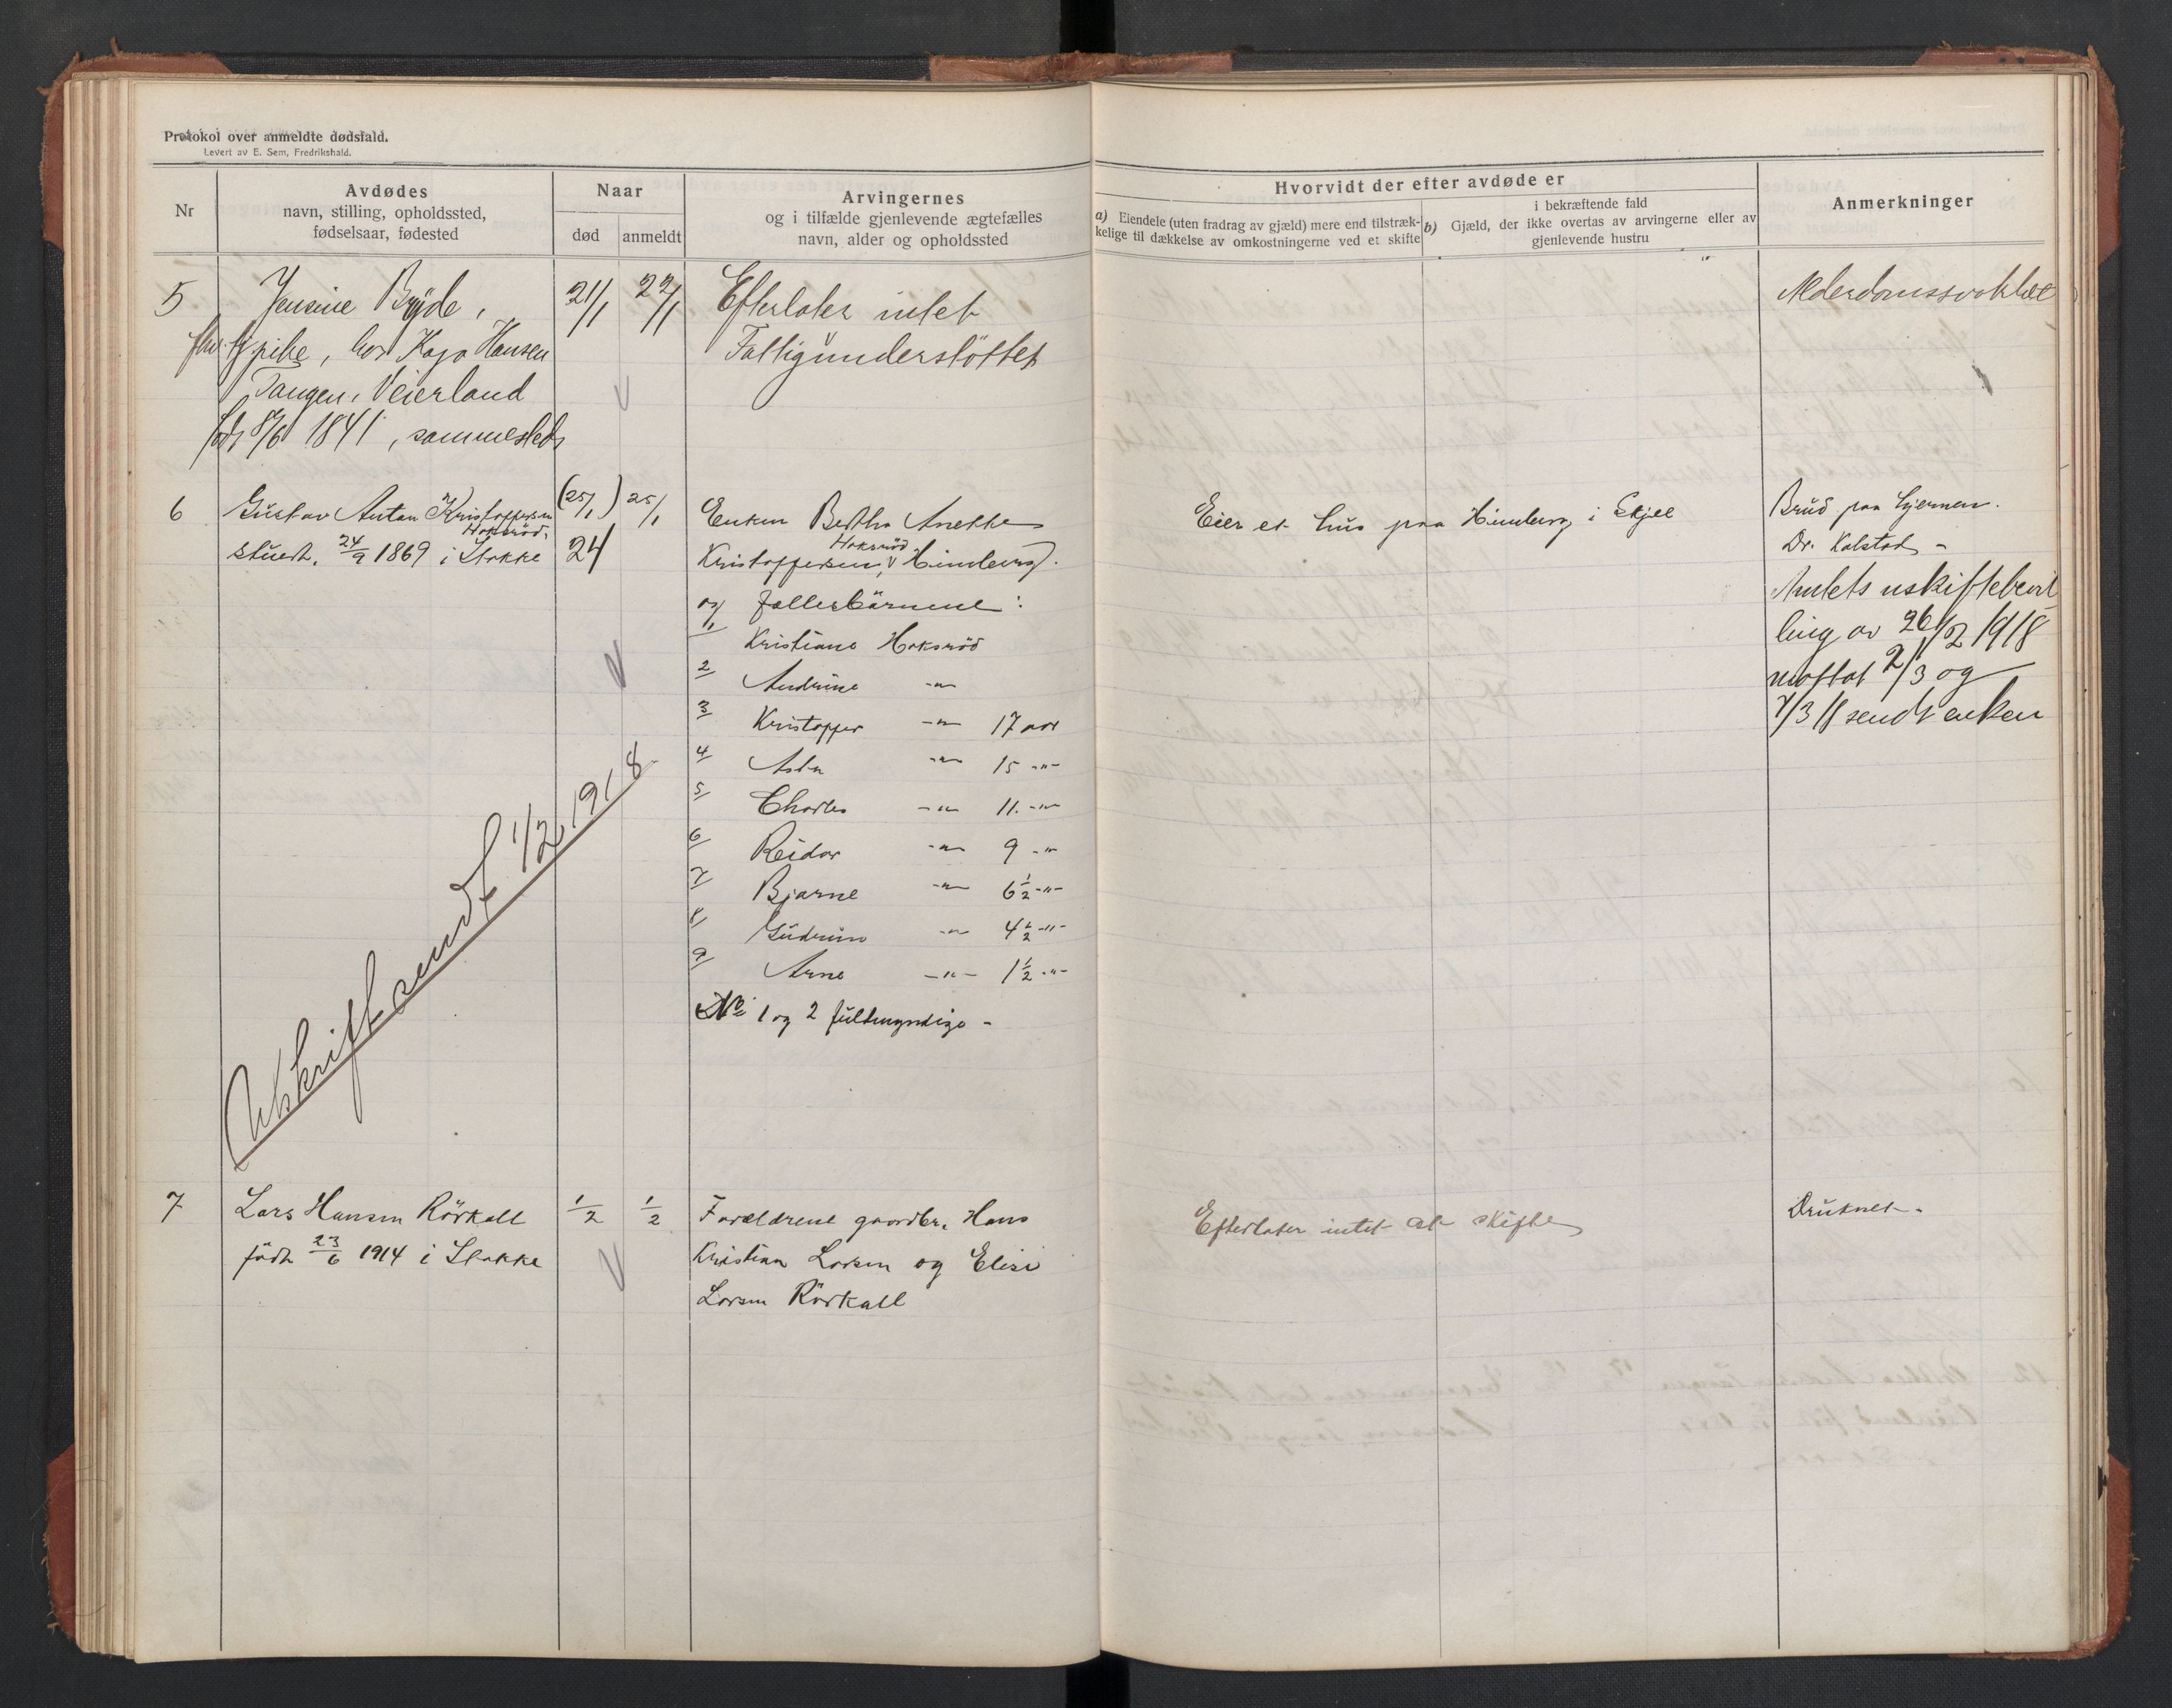 Protokol over anmeldte dødsfald.
Levert av E. Sem, Fredrikshald.
Nr
Avdødes
navn, stilling, opholdssted,
fødselsaar, fødested
Naar
død
anmeldt
Arvingernes
og i tilfælde gjenlevende ægtefælles
navn, alder og opholdssted
Hvorvidt der efter avdøde er
a) Eiendele (uten fradrag av gjæld) mere end tilstræk-
kelige til dækkelse av omkostningerne ved et skifte
i bekræftende fald
b) Gjæld, der ikke overtas av arvingerne eller av
gjenlevende hustru
Anmerkninger
5 Jensine Bryde, 21/1 22/1 Efterlater intet Alderdomssvakhet
fhv. tj.pike, hos Kaja Hansen Fattigunderstöttet
Tangen, Veierland
född 8/6 1841, sammesteds
6 Gustav Anton Kristoffersen (25/1) 25/1 Enken Bertha Anette Eier et hus paa Himberg i Skjee Brud paa hjernen.
Hoksröd, Hoksröd
stuert, 24/9 1869 i Stokke 24 Kristoffersen, Himberg. Dr. Kolstad -
og fællesbörnene: Amtets uskiftebevil
1/ Kristiane Hoksröd ling av 26/2 1918
2/ Andrine -"- mottat 2/3 og
3/ Kristoffer -"- 17 aar 7/3 18 sendt enken
4/ Asta -"- 15 -"-
5/ Charles -"- 11. -"-
6/ Reidar -"- 9 -"-
7/ Bjarne -"- 6 1/2 -"-
8/ Gudrun -"- 4 1/2 -"-
9/ Arne -"- 1 1/2 -"-
No 1 og 2 fuldmyndige -
Utskrift sendt 1/2 1918.
7 Lars Hansen Rörkall 1/2 1/2 Forældrene gaardbr. Hans Efterlater intet at skifte Druknet.
född 23/6 1914 i Stokke Kristian Larsen og Elise
Larsen Rörkall